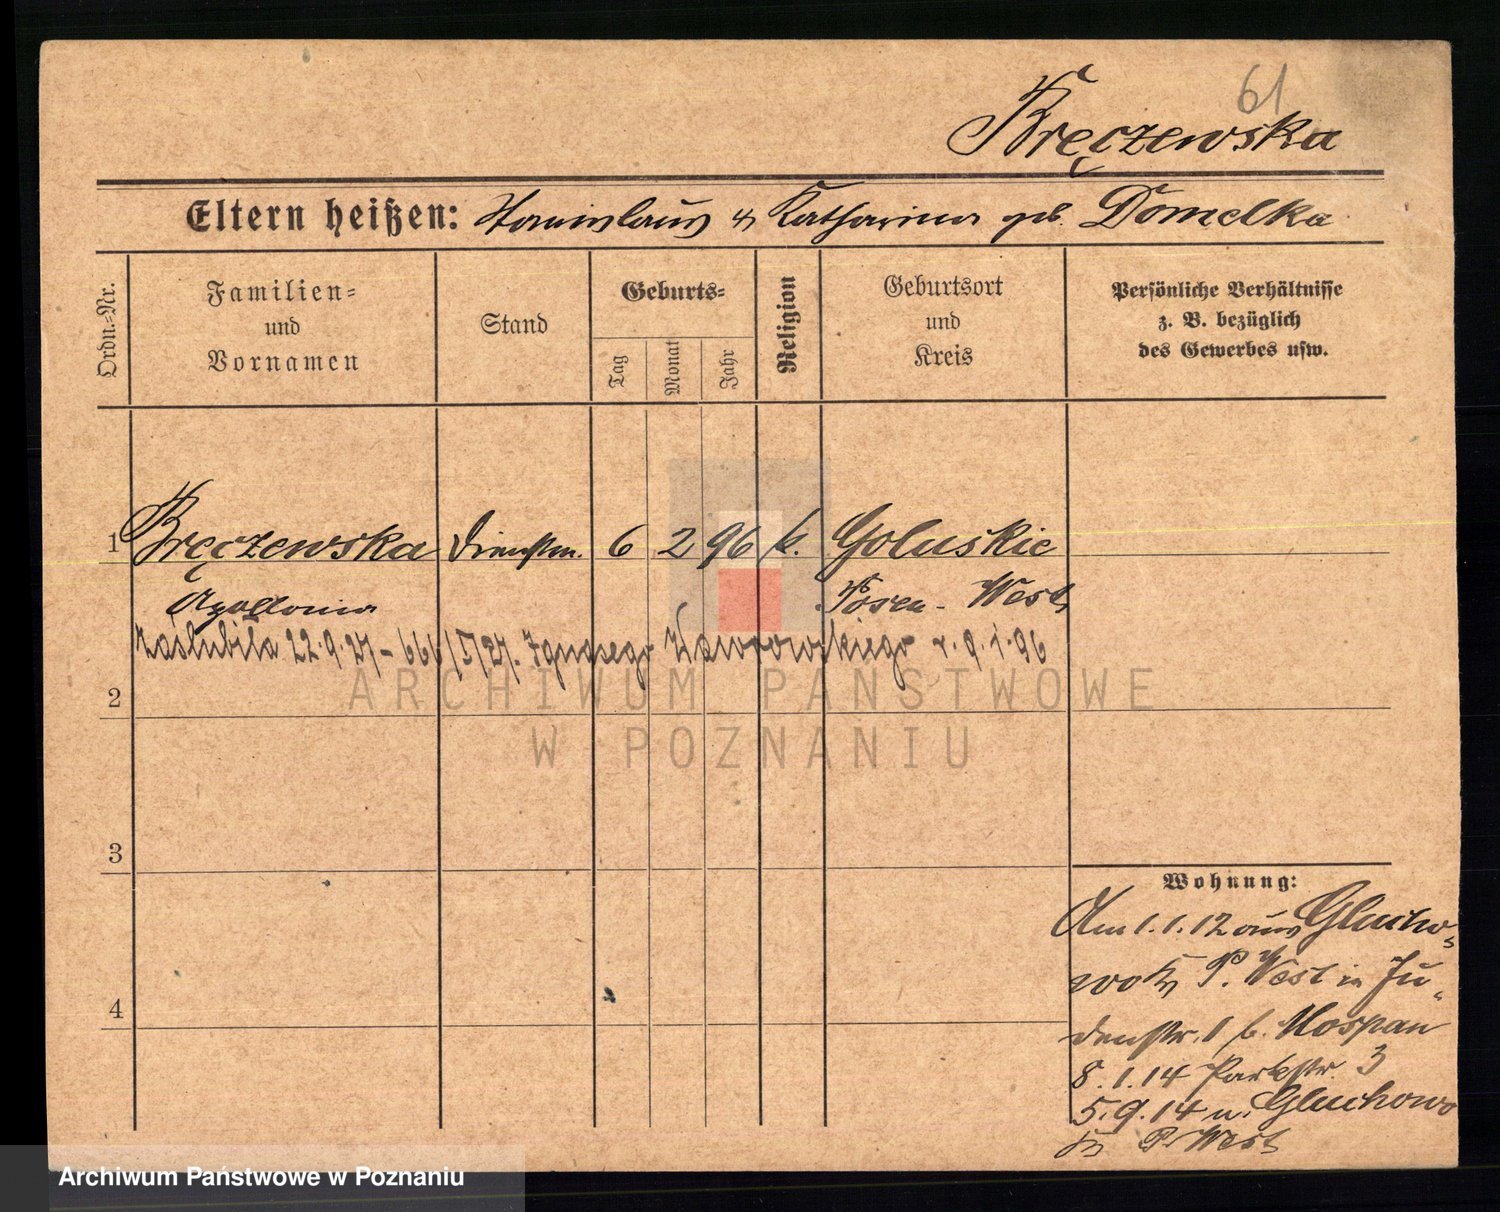 61
Kręczewska
Eltern heißen: Stanislaus u Katharina geb. Domelka
Ordn.=Nr.
Familien=
und
Vornamen
Stand
Geburts=
Tag
Monat
Jahr
Religion
Geburtsort
und
Kreis
Persönliche Verhältnisse
z. B. bezüglich
des Gewerbes usw.
1 Kręczewska Dienstm. 6 2 96 k. Goluskie
Apollonia Posen-West
zaślubiła 22.9.27 - 666/5/27. Ignacego Kaworowskiego r. 9.1.96
2
3
4
Wohnung:
Am 1.1.12 aus Glucho-
wo Kr P. West in Ju-
denstr. 1 b. Mospan
8.1.14 Parkstr. 3
5.9.14 n. Gluchowo
Kr P. West
ARCHIWUM PAŃSTWOWE
W POZNANIU
Archiwum Państwowe w Poznaniu